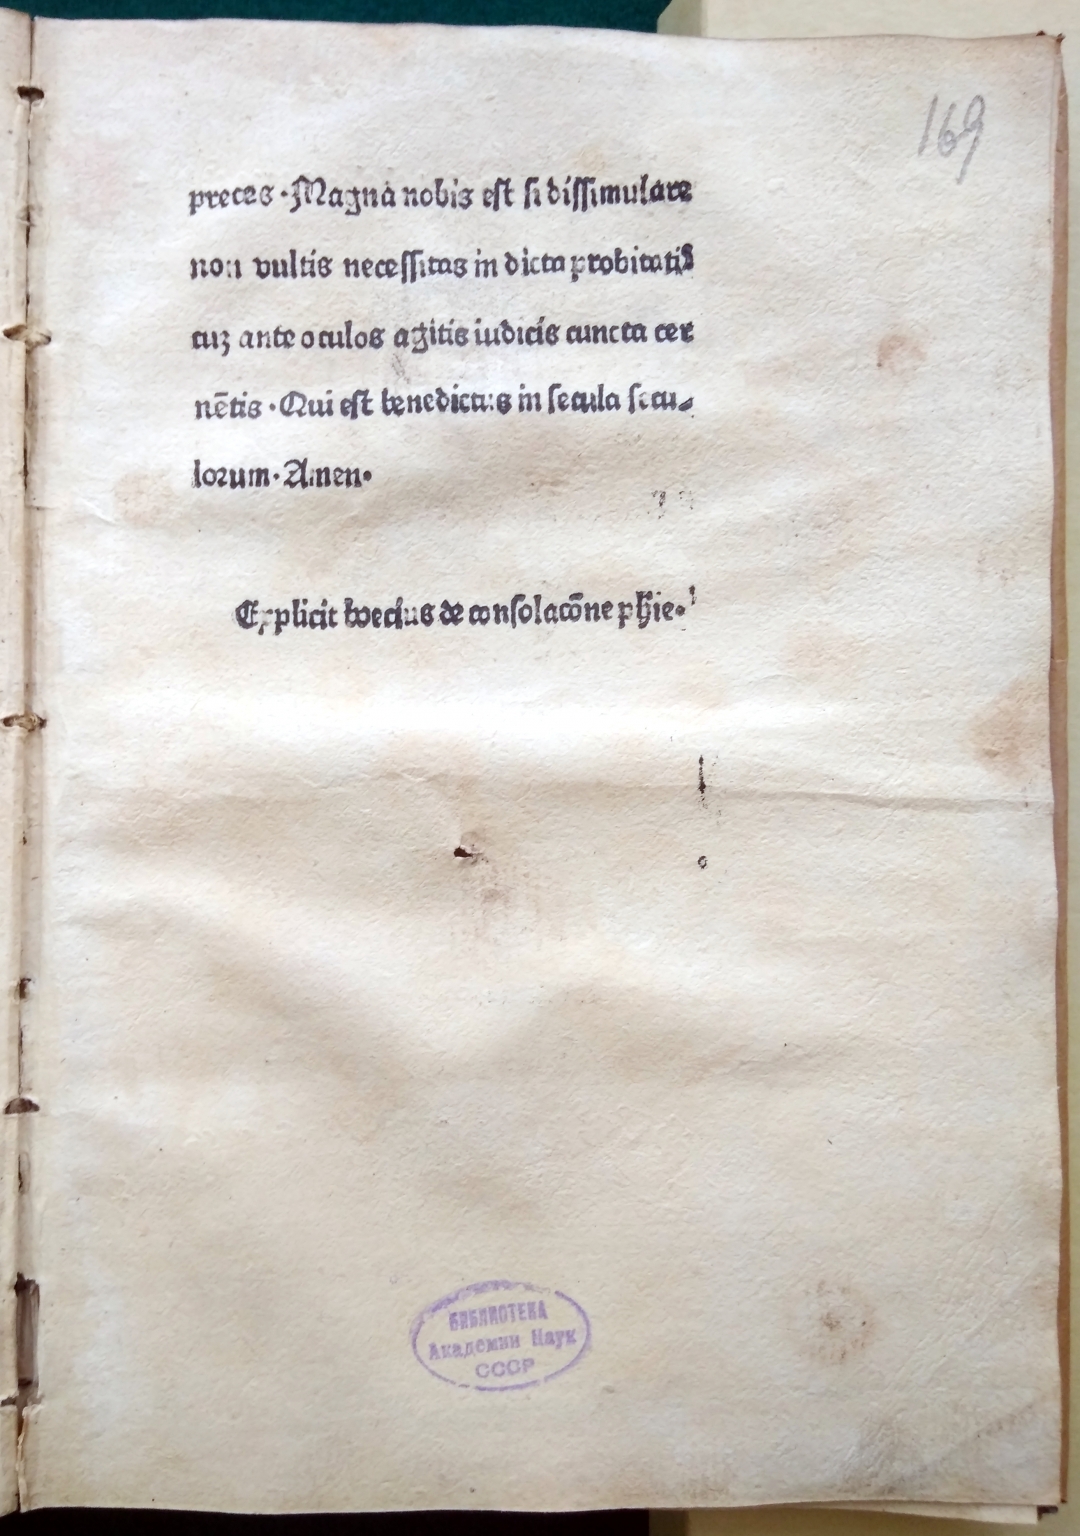 169
preces · Magna nobis est si dissimulare
non vultis necessitas indicta probitatis
cuꝫ ante oculos agitis iudicis cuncta cer
nẽtis · Qui est benedictus in secula secu⸗
lorum · Amen ·
Explicit boecius de consolacõne ph̃ie ·
БИБЛИОТЕКА
Академии Наук
СССР